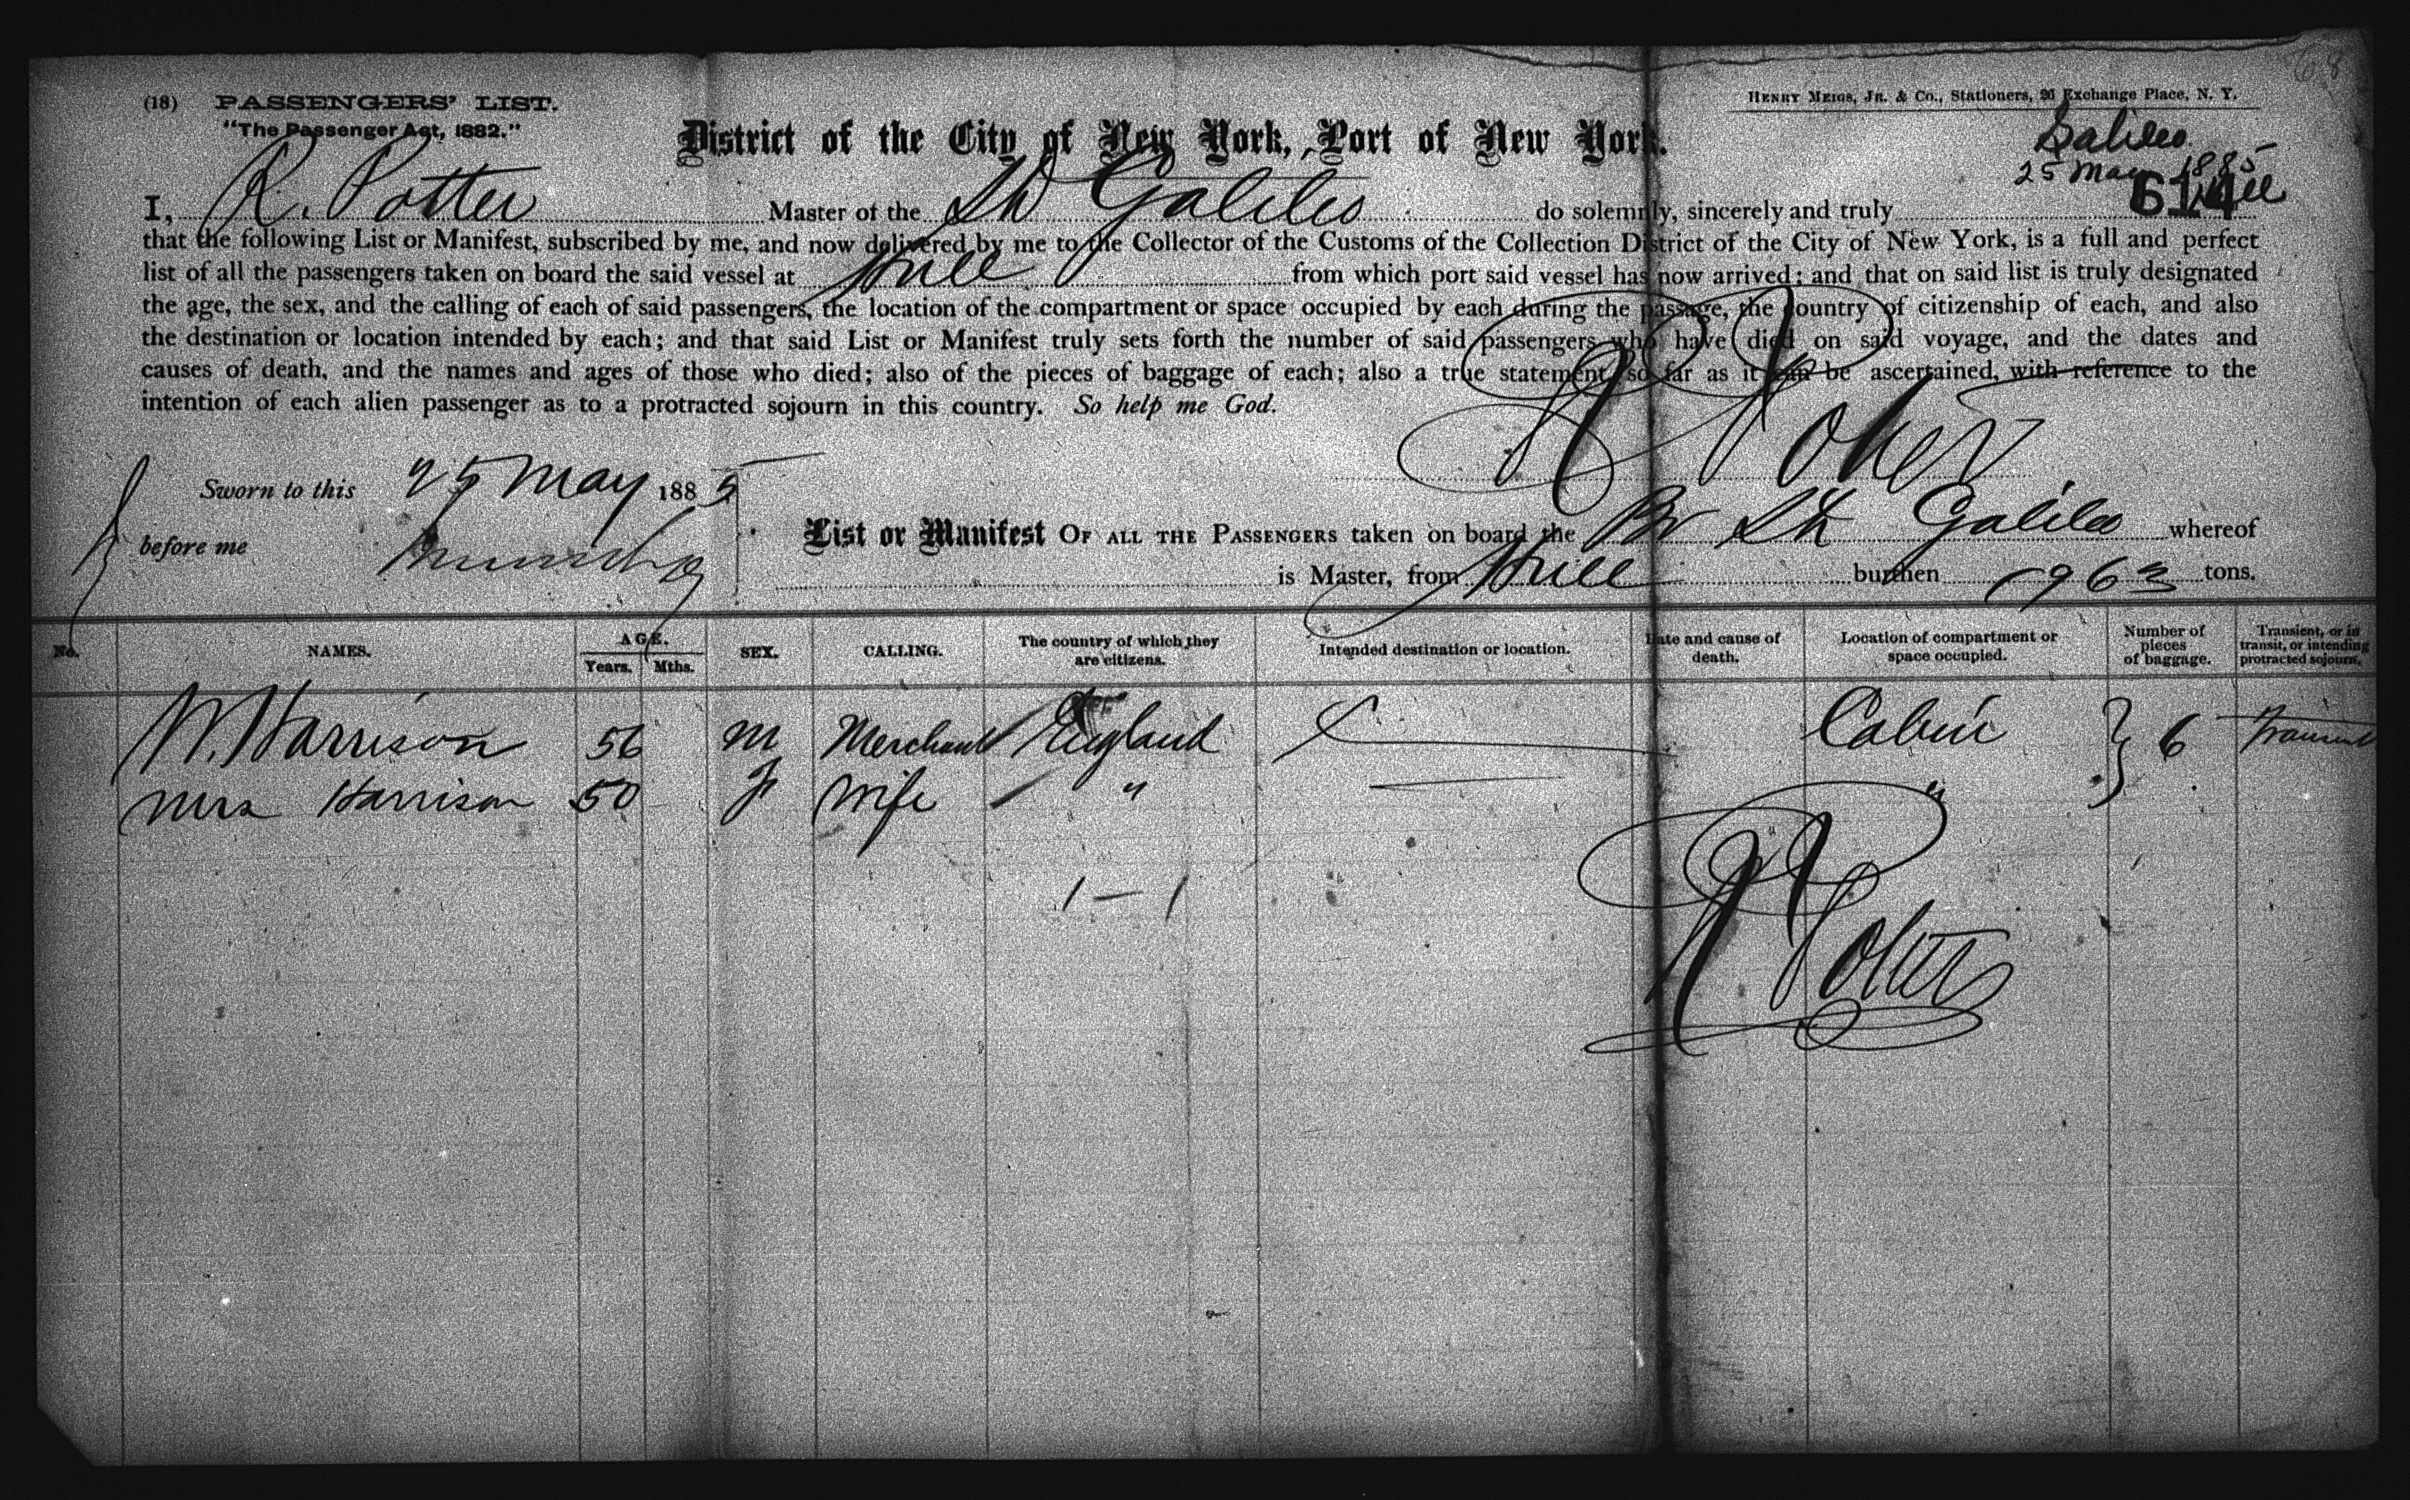 68
(18) PASSENGERS' LIST.
"The Passenger Act, 1882."
HENRY MEIGS, JR. & CO., Stationers, 26 Exchange Place, N. Y.
District of the City of New York, Port of New York.
Galileo
25 May 1885
Hull
614
I, R. Potter Master of the SS Galileo do solemnly, sincerely and truly
that the following List or Manifest, subscribed by me, and now delivered by me to the Collector of the Customs of the Collection District of the City of New York, is a full and perfect
list of all the passengers taken on board the said vessel at Hull from which port said vessel has now arrived; and that on said list is truly designated
the age, the sex, and the calling of each of said passengers, the location of the compartment or space occupied by each during the passage, the country of citizenship of each, and also
the destination or location intended by each; and that said List or Manifest truly sets forth the number of said passengers who have died on said voyage, and the dates and
causes of death, and the names and ages of those who died; also of the pieces of baggage of each; also a true statement, so far as it can be ascertained, with reference to the
intention of each alien passenger as to a protracted sojourn in this country. So help me God.
R Potter
Sworn to this 25 May 1885
before me
List or Manifest OF ALL THE PASSENGERS taken on board the Br SS Galileo whereof
is Master, from Hull burthen 1963 tons.
No. NAMES. AGE. Years. Mths. SEX. CALLING. The country of which they are citizens. Intended destination or location. Date and cause of death. Location of compartment or space occupied. Number of pieces of baggage. Transient, or in transit, or intending protracted sojourn.
W. Harrison 56 M Merchant England Cabin 6 Transient
Mrs Harrison 50 F Wife " "
1 — 1
R Potter